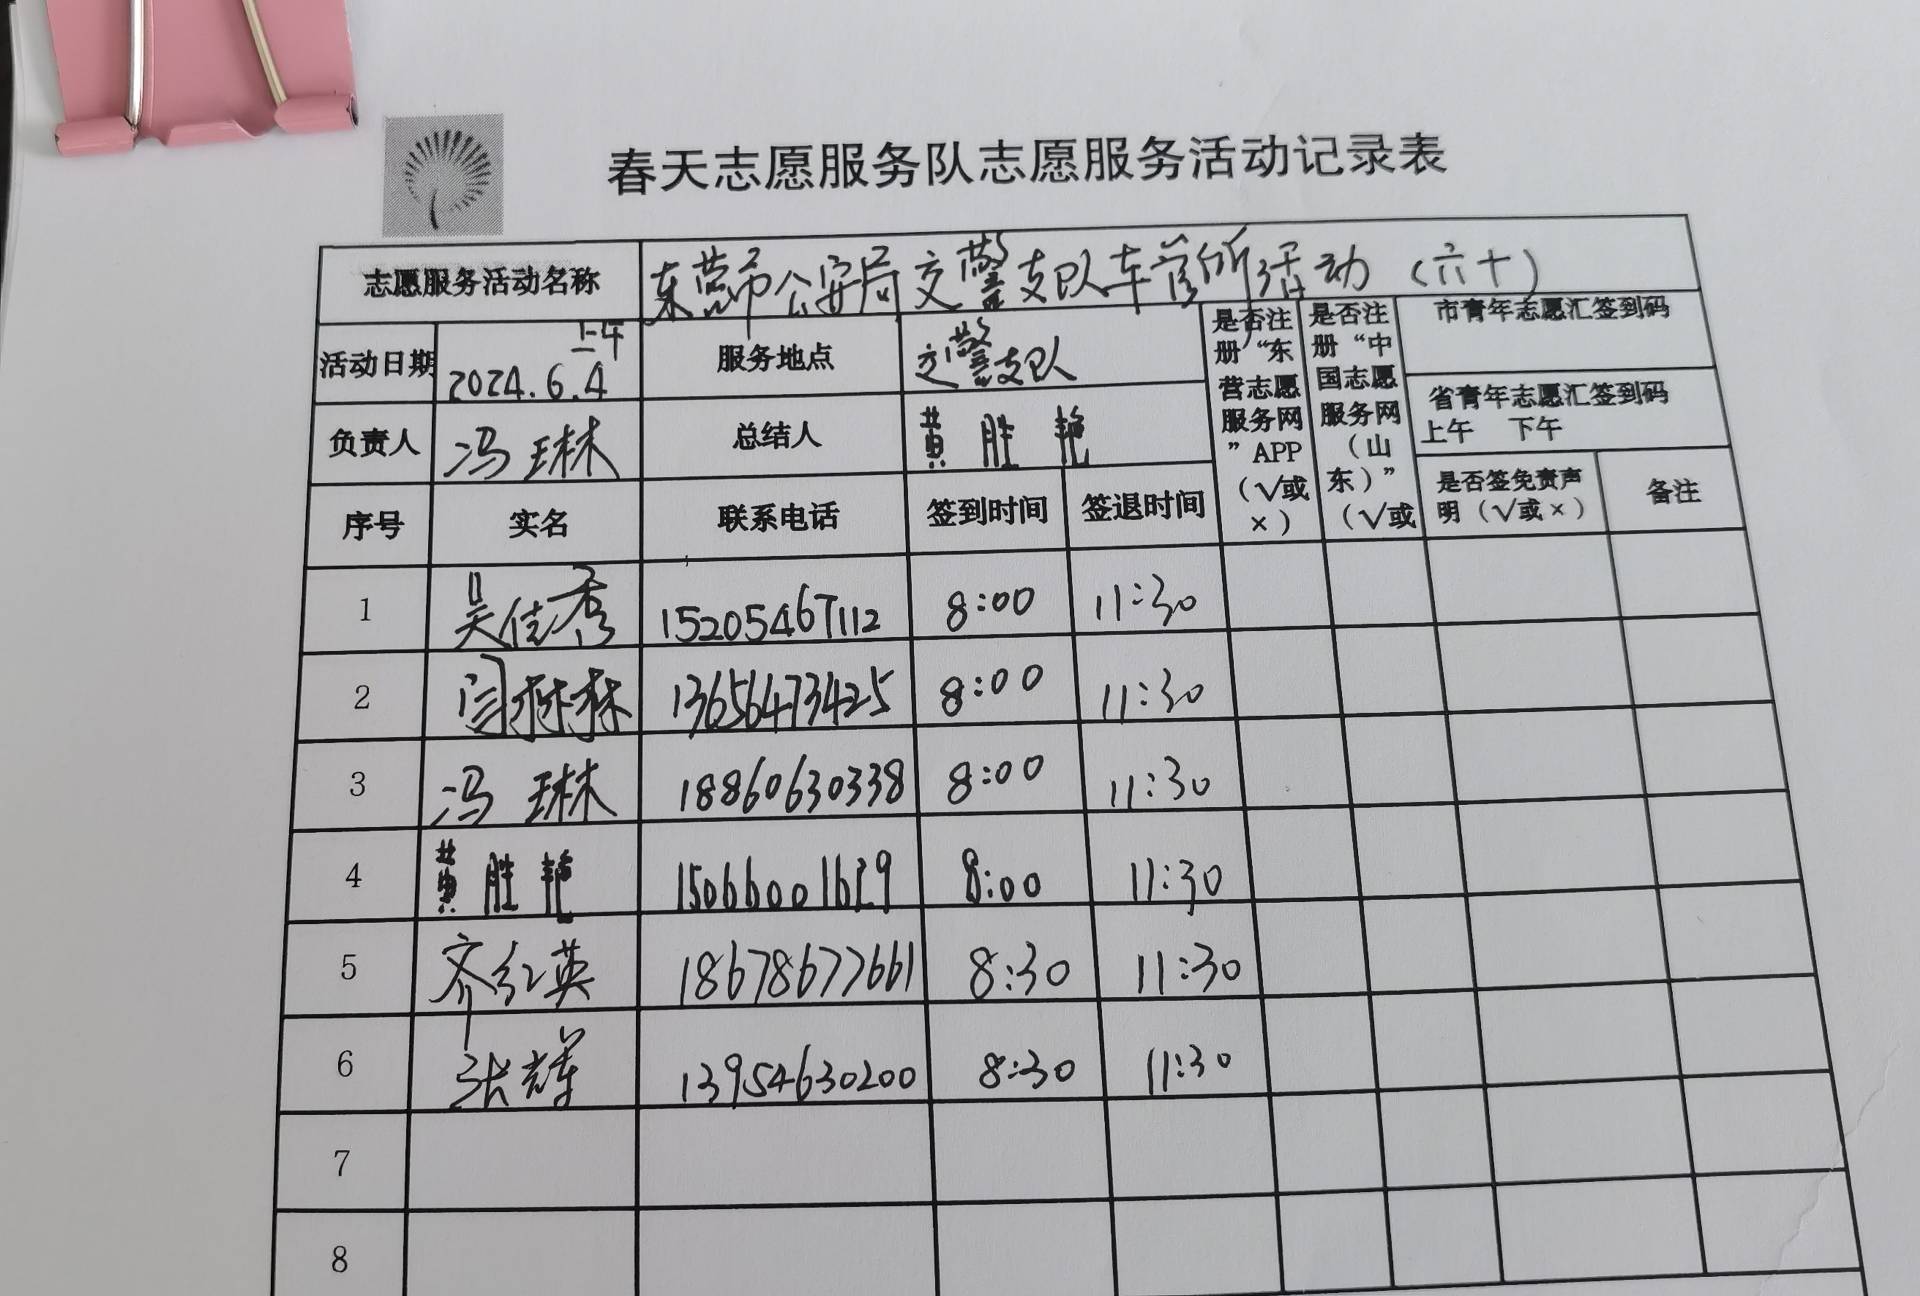 春天志愿服务队志愿服务活动记录表
志愿服务活动名称 东营市公安局交警支队车管所活动（六十）
活动日期 2024.6.4 上午 服务地点 交警支队 是否注册“东营志愿服务网”APP（√或×） 是否注册“中国志愿服务网（山东）”（√或 市青年志愿汇签到码
省青年志愿汇签到码
上午 下午
负责人 冯琳 总结人 黄胜艳
序号 实名 联系电话 签到时间 签退时间 是否签免责声明（√或×） 备注
1 吴佳秀 15205467112 8:00 11:30
2 闫林林 13656473425 8:00 11:30
3 冯琳 18860630338 8:00 11:30
4 黄胜艳 15066001629 8:00 11:30
5 齐红英 18678677661 8:30 11:30
6 张辉 13954630200 8:30 11:30
7
8